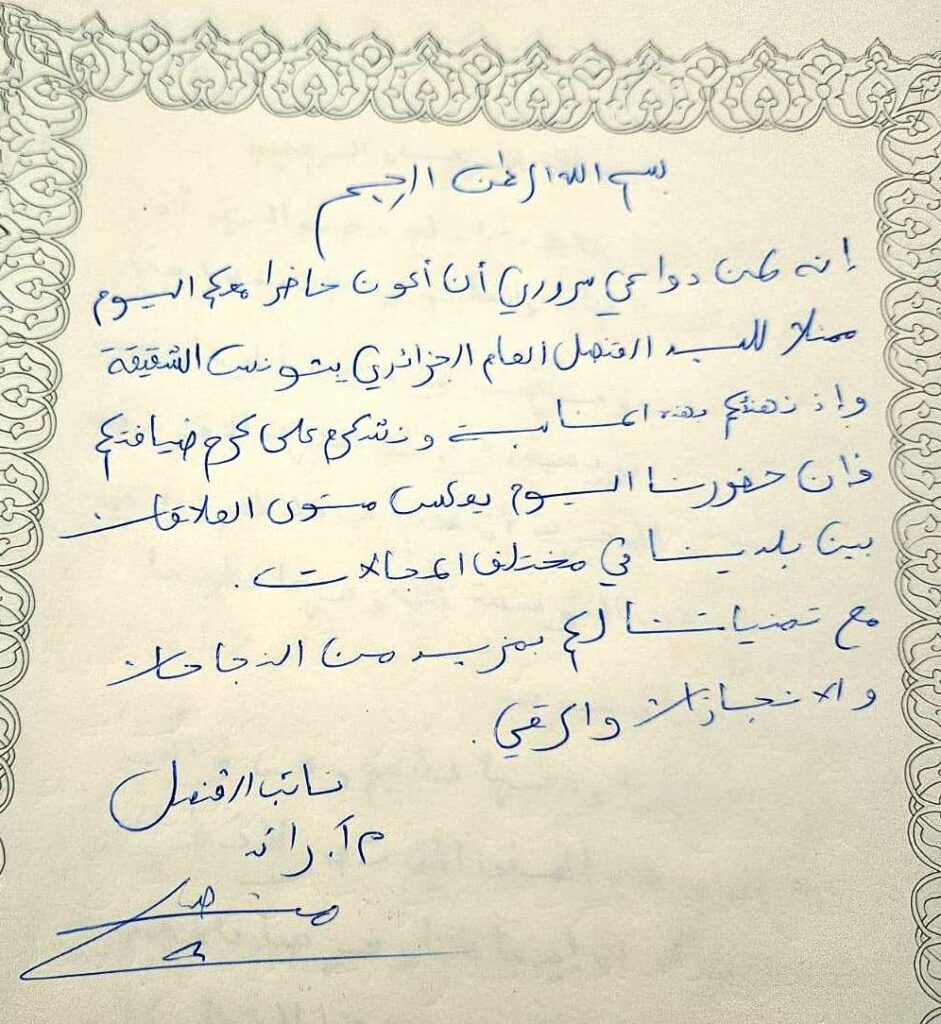 بسم الله الرحمن الرحيم
إنه لمن دواعي سروري أن أكون حاضرا معكم اليوم
ممثلا للسيد القنصل العام الجزائري بتونس الشقيقة
وإذ نهنئكم بهذه المناسبة ونشكركم على كرم ضيافتكم
فإن حضورنا اليوم يعكس مستوى العلاقات
بين بلدينا في مختلف المجالات .
مع تمنياتنا لكم بمزيد من النجاحات
والانجازات والرقي .
نائب القنصل
م أ.